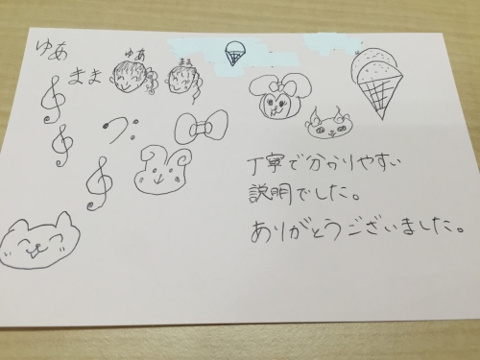 ゆあ
まま
ゆあ
まま
丁寧で分かりやすい
説明でした。
ありがとうございました。